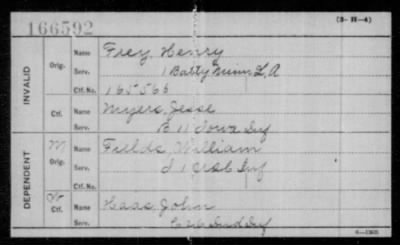 166592
(3-H-4)
INVALID
Orig.
Name Frey, Henry
Serv. 1 Batty Minn L, A
Ctf. No. 165566
Ctf.
Name Myers, Jesse
Serv. B 11 Iowa Inf
DEPENDENT
M
Orig.
Name Fields, William
Serv. I 1 Inf
Ctf. No.
W
Ctf.
Name Haas, John
Serv. Ind Inf